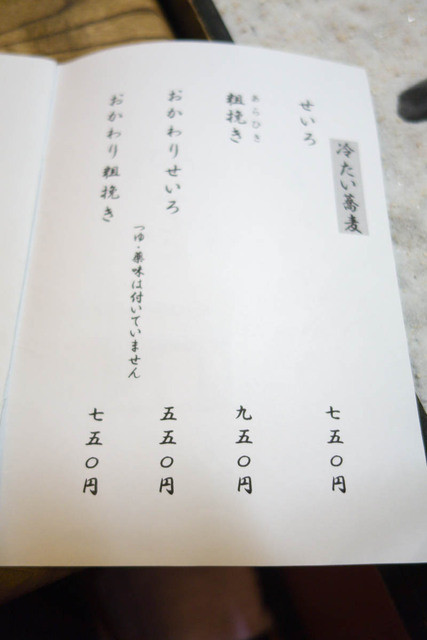 冷たい蕎麦
せいろ
七五〇円
あらびき
粗挽き
九五〇円
おかわりせいろ
五五〇円
つゆ・薬味は付いていません
おかわり粗挽き
七五〇円